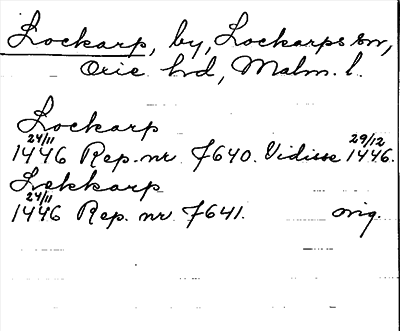 Lockarp, by, Lockarps sn,
Oxie hd, Malm. l.
Lockarp
24/11 1446 Rep. nr 7640. Vidisse 29/12 1446.
Lekkarp
24/11 1446 Rep. nr 7641. orig.